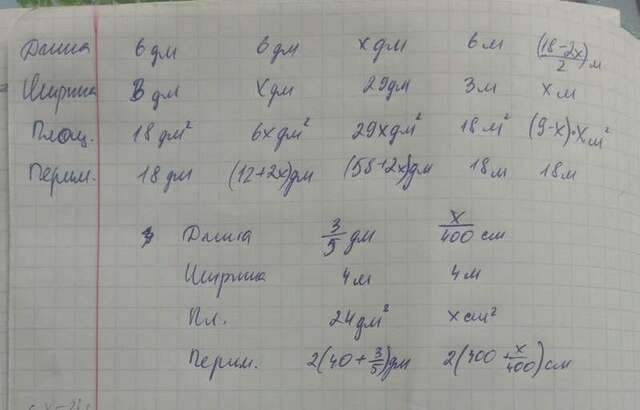 Длина 6 дм 6 дм x дм 6 м (18-2x)/2 м
Ширина 3 дм x дм 29 дм 3 м x м
Площ. 18 дм² 6x дм² 29x дм² 18 м² (9-x)·x м²
Перим. 18 дм (12+2x) дм (58+2x) дм 18 м 18 м
Длина 3/5 дм x/400 см
Ширина 4 м 4 м
Пл. 24 дм² x см²
Перим. 2(40+3/5) дм 2(400+x/400) см